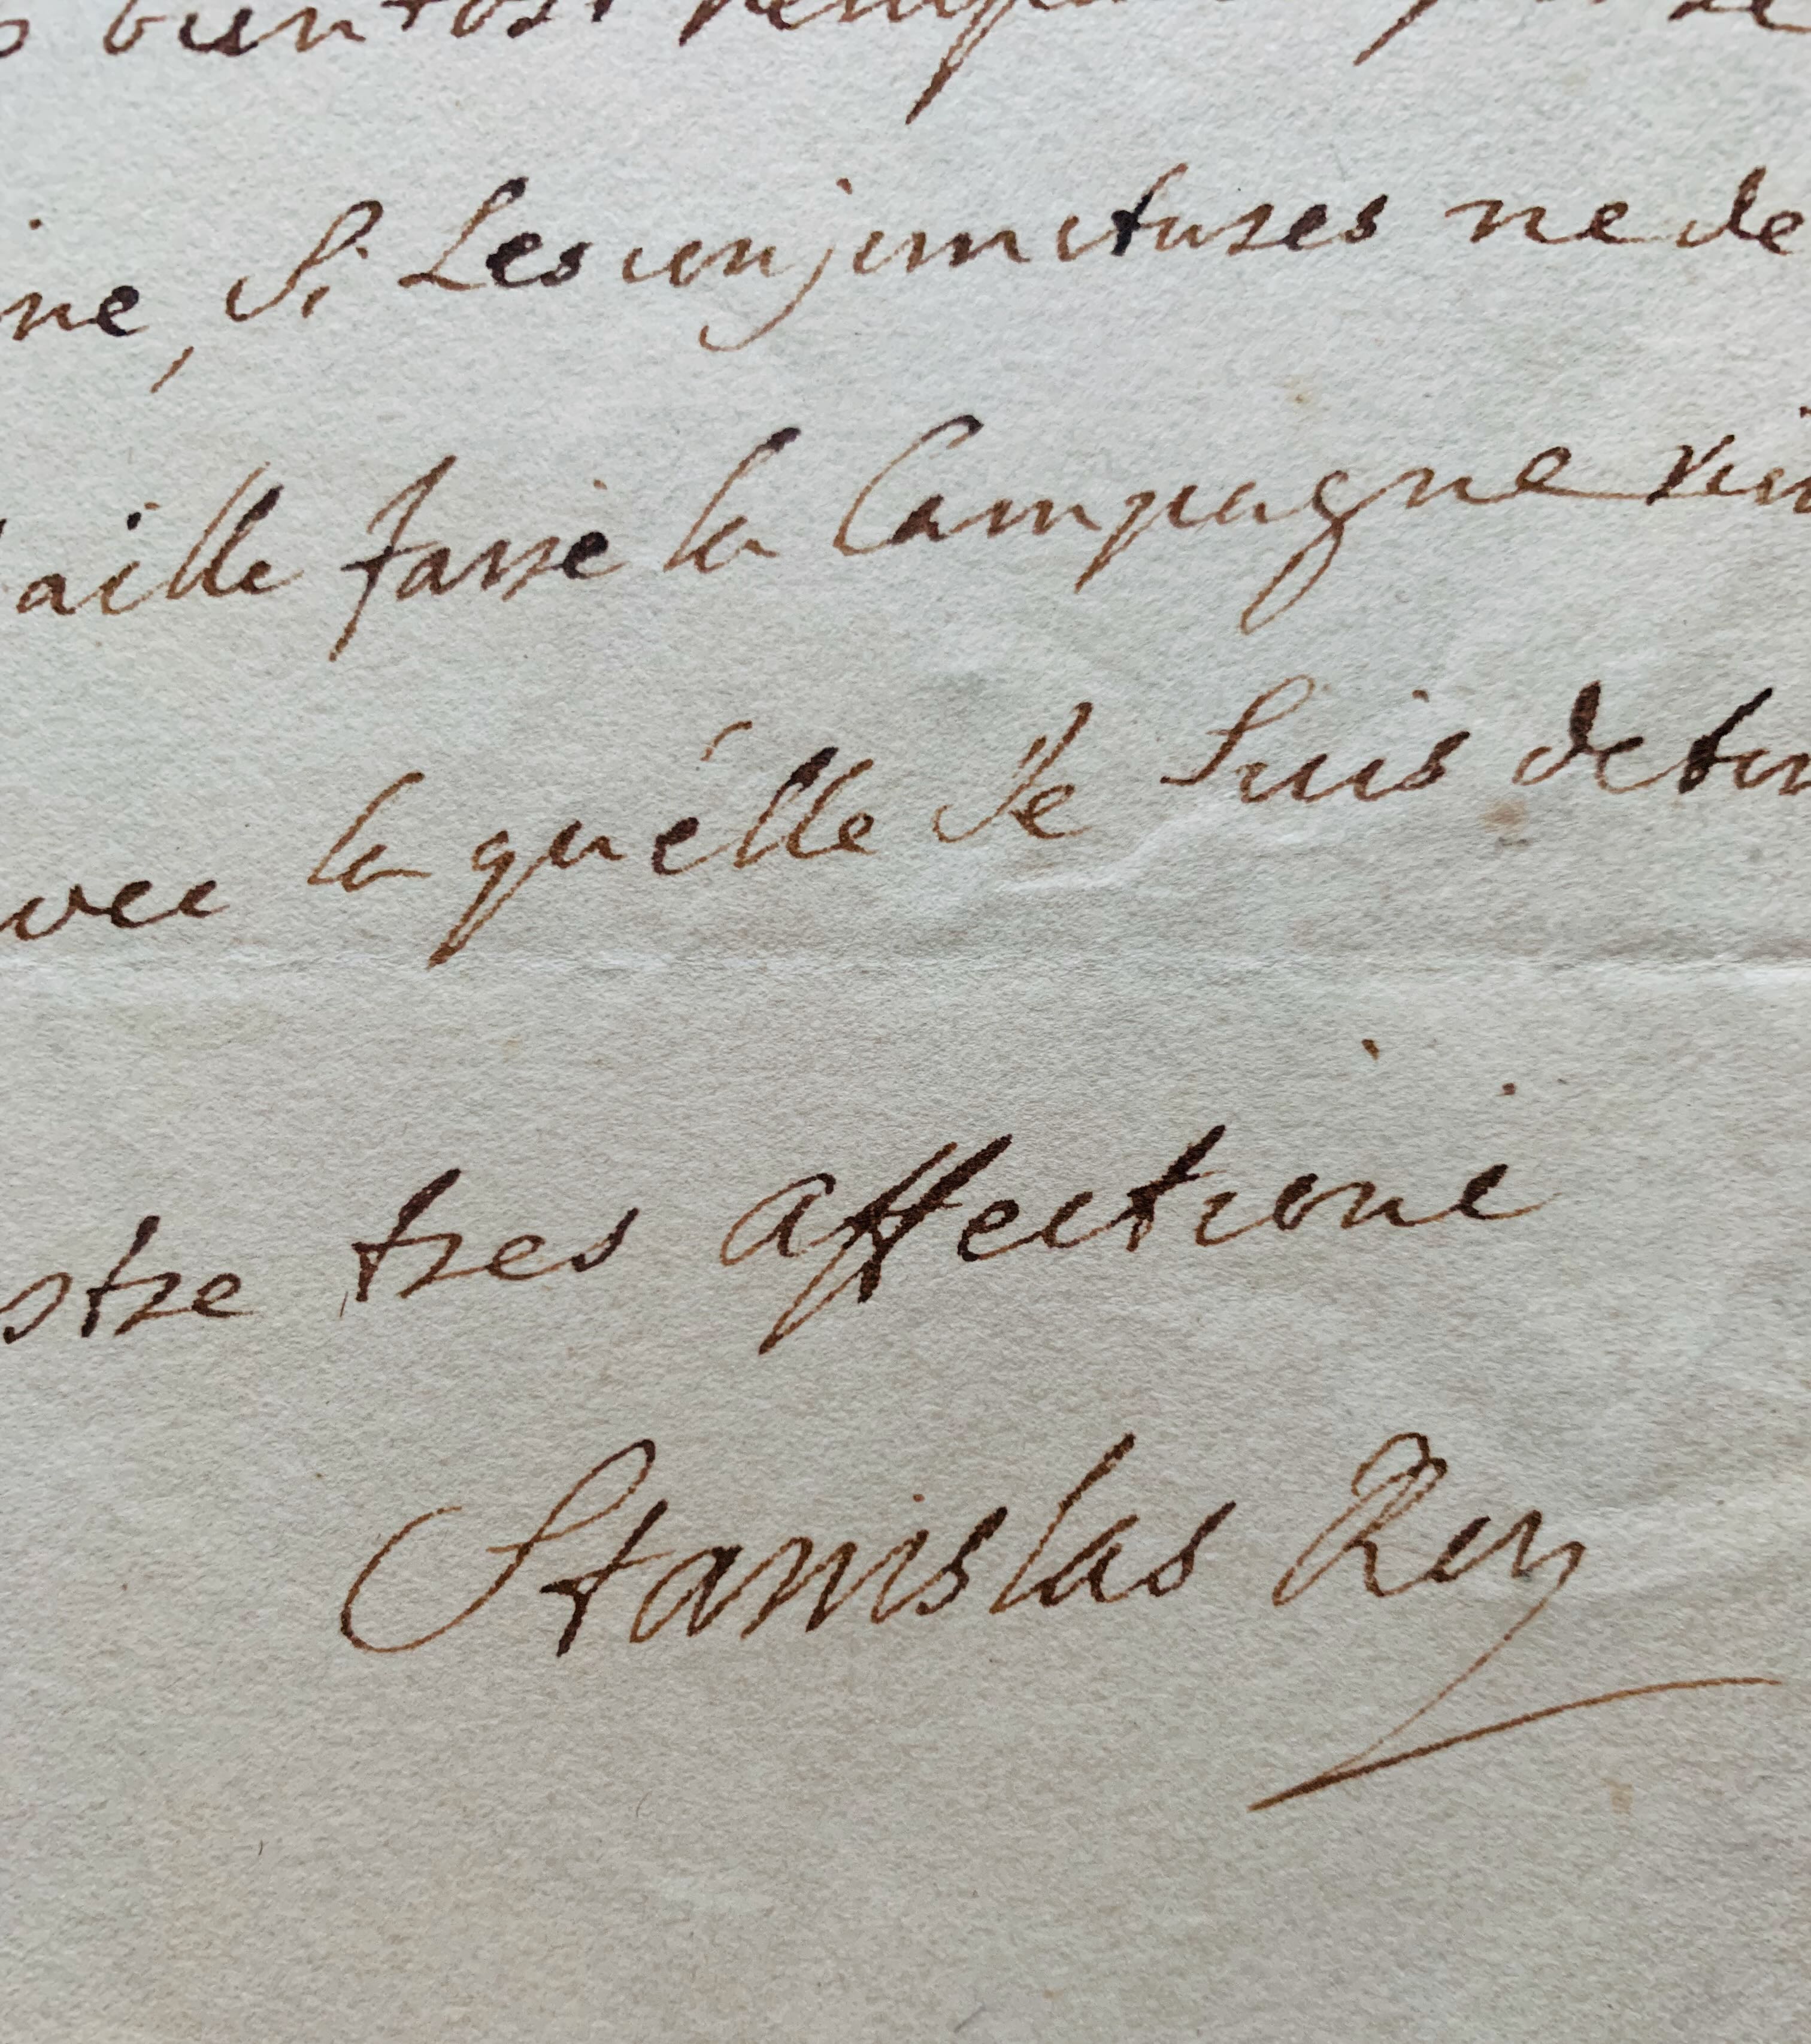 bientost
ine, Si Les conjunctures ne de
aille faire la Campagne
avec la quélle Je Suis de
ostre tres affectioné
Stanislas Roy